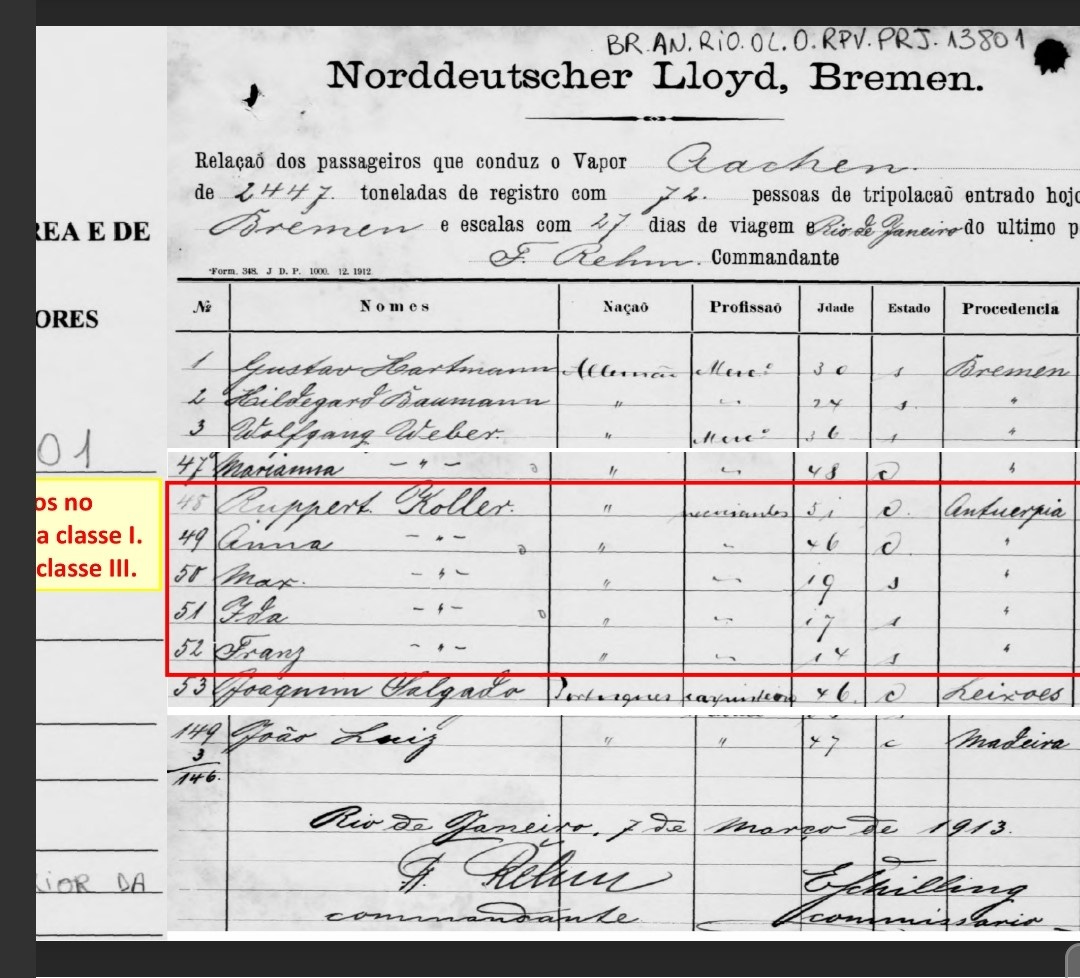 BR.AN.RIO.OL.O.RPV.PRJ.13801
Norddeutscher Lloyd, Bremen.
Relaçaõ dos passageiros que conduz o Vapor Aachen.
de 2447. toneladas de registro com 72. pessoas de tripolacaõ entrado hojo
Bremen e escalas com 27 dias de viagem e Rio de Janeiro do ultimo p
F. Rehm. Commandante
Form. 348. J D. P. 1000. 12. 1912
№ Nomes Naçaõ Profissaõ Jdade Estado Procedencia
1 Gustav Hartmann Allemão Merc. 30 s Bremen
2 Hildegard Baumann " 24 s. "
3 Wolfgang Weber. " Merc. 36 s "
47 Marianna - " - " 48 c "
48 Ruppert Koller. " 51 c. Antuerpia
49 Anna - " - " 46 c "
50 Max. - " - " 19 s "
51 Ida - " - " 17 s "
52 Franz - " - " 14 s "
53 Joaquim Salgado Portugues 46. c Leixoes
149 João Luiz " " 47 c Madeira
3
146.
Rio de Janeiro, 7 de Março de 1913.
F. Rehm
commandante
E Schilling
commissario
REA E DE
ORES
01
os no
a classe I.
classe III.
RIOR DA